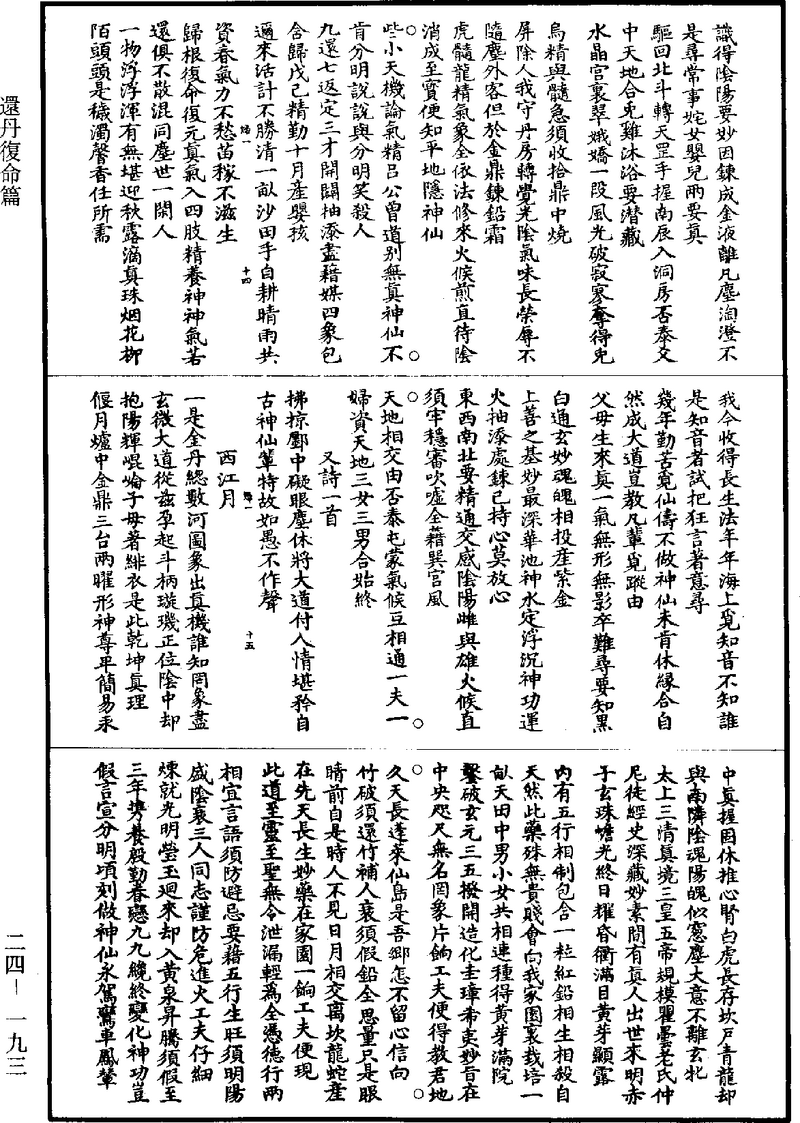 還丹復命篇
識得陰陽要妙因鍊成金液離凡塵淘澄不
是尋常事姹女嬰兒兩要真
驅回北斗轉天罡手握南辰入洞房否泰爻
中天地合兎雞沐浴要潛藏
水晶宮裏翠娥嬌一段風光破寂寥奪得兎
烏精與髓急須收拾鼎中燒
屏除人我守丹房轉覺光陰氣味長榮辱不
隨塵外客但於金鼎鍊鉛霜
虎髓龍精氣象全依法修來火候煎直待陰
消成至寶便知平地隱神仙
些小天機論氣精呂公曾道別無真神仙不
肯分明說說與分明笑殺人
九還七返定三才開闢抽添盡藉媒四象包
含歸戊己精勤十月產嬰孩
邇來活計不勝清一畝沙田手自耕晴雨共
資春氣力不愁苗稼不滋生
歸一
十四
歸根復命復元真氣入四肢精養神神氣若
還俱不散混同塵世一閑人
一物浮浮渾有無堪迎秋露滴真珠烟花柳
陌頭頭是穢濁馨香任所需
我今收得長生法年年海上覓知音不知誰
是知音者試把狂言著意尋
幾年勤苦覓仙儔不做神仙未肯休緣合自
然成大道豈教凡輩覓蹤由
父毋生來真一氣無形無影卒難尋要知黑
白通玄妙魂魄相投產紫金
上善之基妙最深華池神水定浮沉神功運
火抽添處鍊己持心莫放心
東西南北要精通交感陰陽雌與雄火候直
須牢穩審吹噓全藉巽宮風
天地相交由否泰屯蒙氣候亙相通一夫一
婦資天地三女三男合始終
又詩一首
拂掠鄽中礙眼塵休將大道付人情堪矜自
古神仙輩特故如愚不作聲
歸一
十五
西江月
一是金丹總數河圖象出真機誰知罔象盡
玄微大道從茲孕起斗柄璇璣正位陰中却
抱陽輝崐崘子毋著緋衣是此乾坤真理
偃月爐中金鼎三台兩曜形神尊卑簡易汞
中真握固休推心腎白虎長存坎戶青龍却
與南隣陰魂陽魄似窻塵大意不離玄牝
太上三清真境三皇五帝規模瞿曇老氏仲
尼徒經史深藏妙素問有真人出世來明赤
子玄珠蟾光終日耀昏衢滿目黃芽顯露
內有五行相制包含一粒紅鉛相生相殺自
天然此藥殊無貴賤會向我家園裏栽培一
畝天田中男小女共相連種得黃芽滿院
鑿破玄元三五撥開造化圭璋希夷妙旨在
中央咫尺無名罔象片餉工夫便得教君地
久天長蓬萊仙島是吾鄉怎不留心信向
竹破須還竹補人衰須假鉛全思量只是眼
睛前自是時人不見日月相交离坎龍蛇產
在先天長生妙藥在家園一餉工夫便現
此道至靈至聖無令泄漏輕爲全憑德行兩
相宜言語須防避忌要藉五行生旺須明陽
盛陰衰三人同志謹防危進火工夫仔細
煉就光明瑩玉廻來却入黃泉昇騰須假至
三年勞養殷勤眷戀九九纔終變化神功豈
假言宣分明頃刻做神仙永駕鸞車鳳輦
二四－一九三